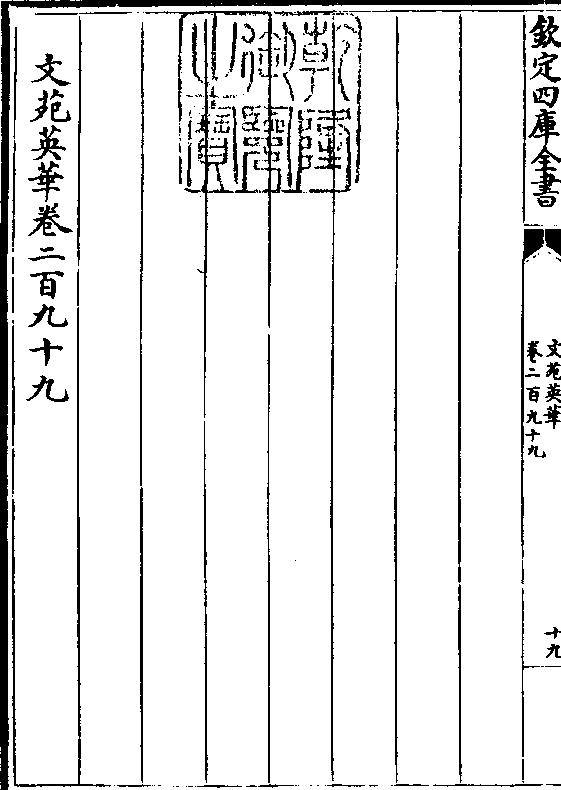 欽定四庫全書
文苑英華
卷二百九十九
十九
乾隆御覽之寶
文苑英華卷二百九十九